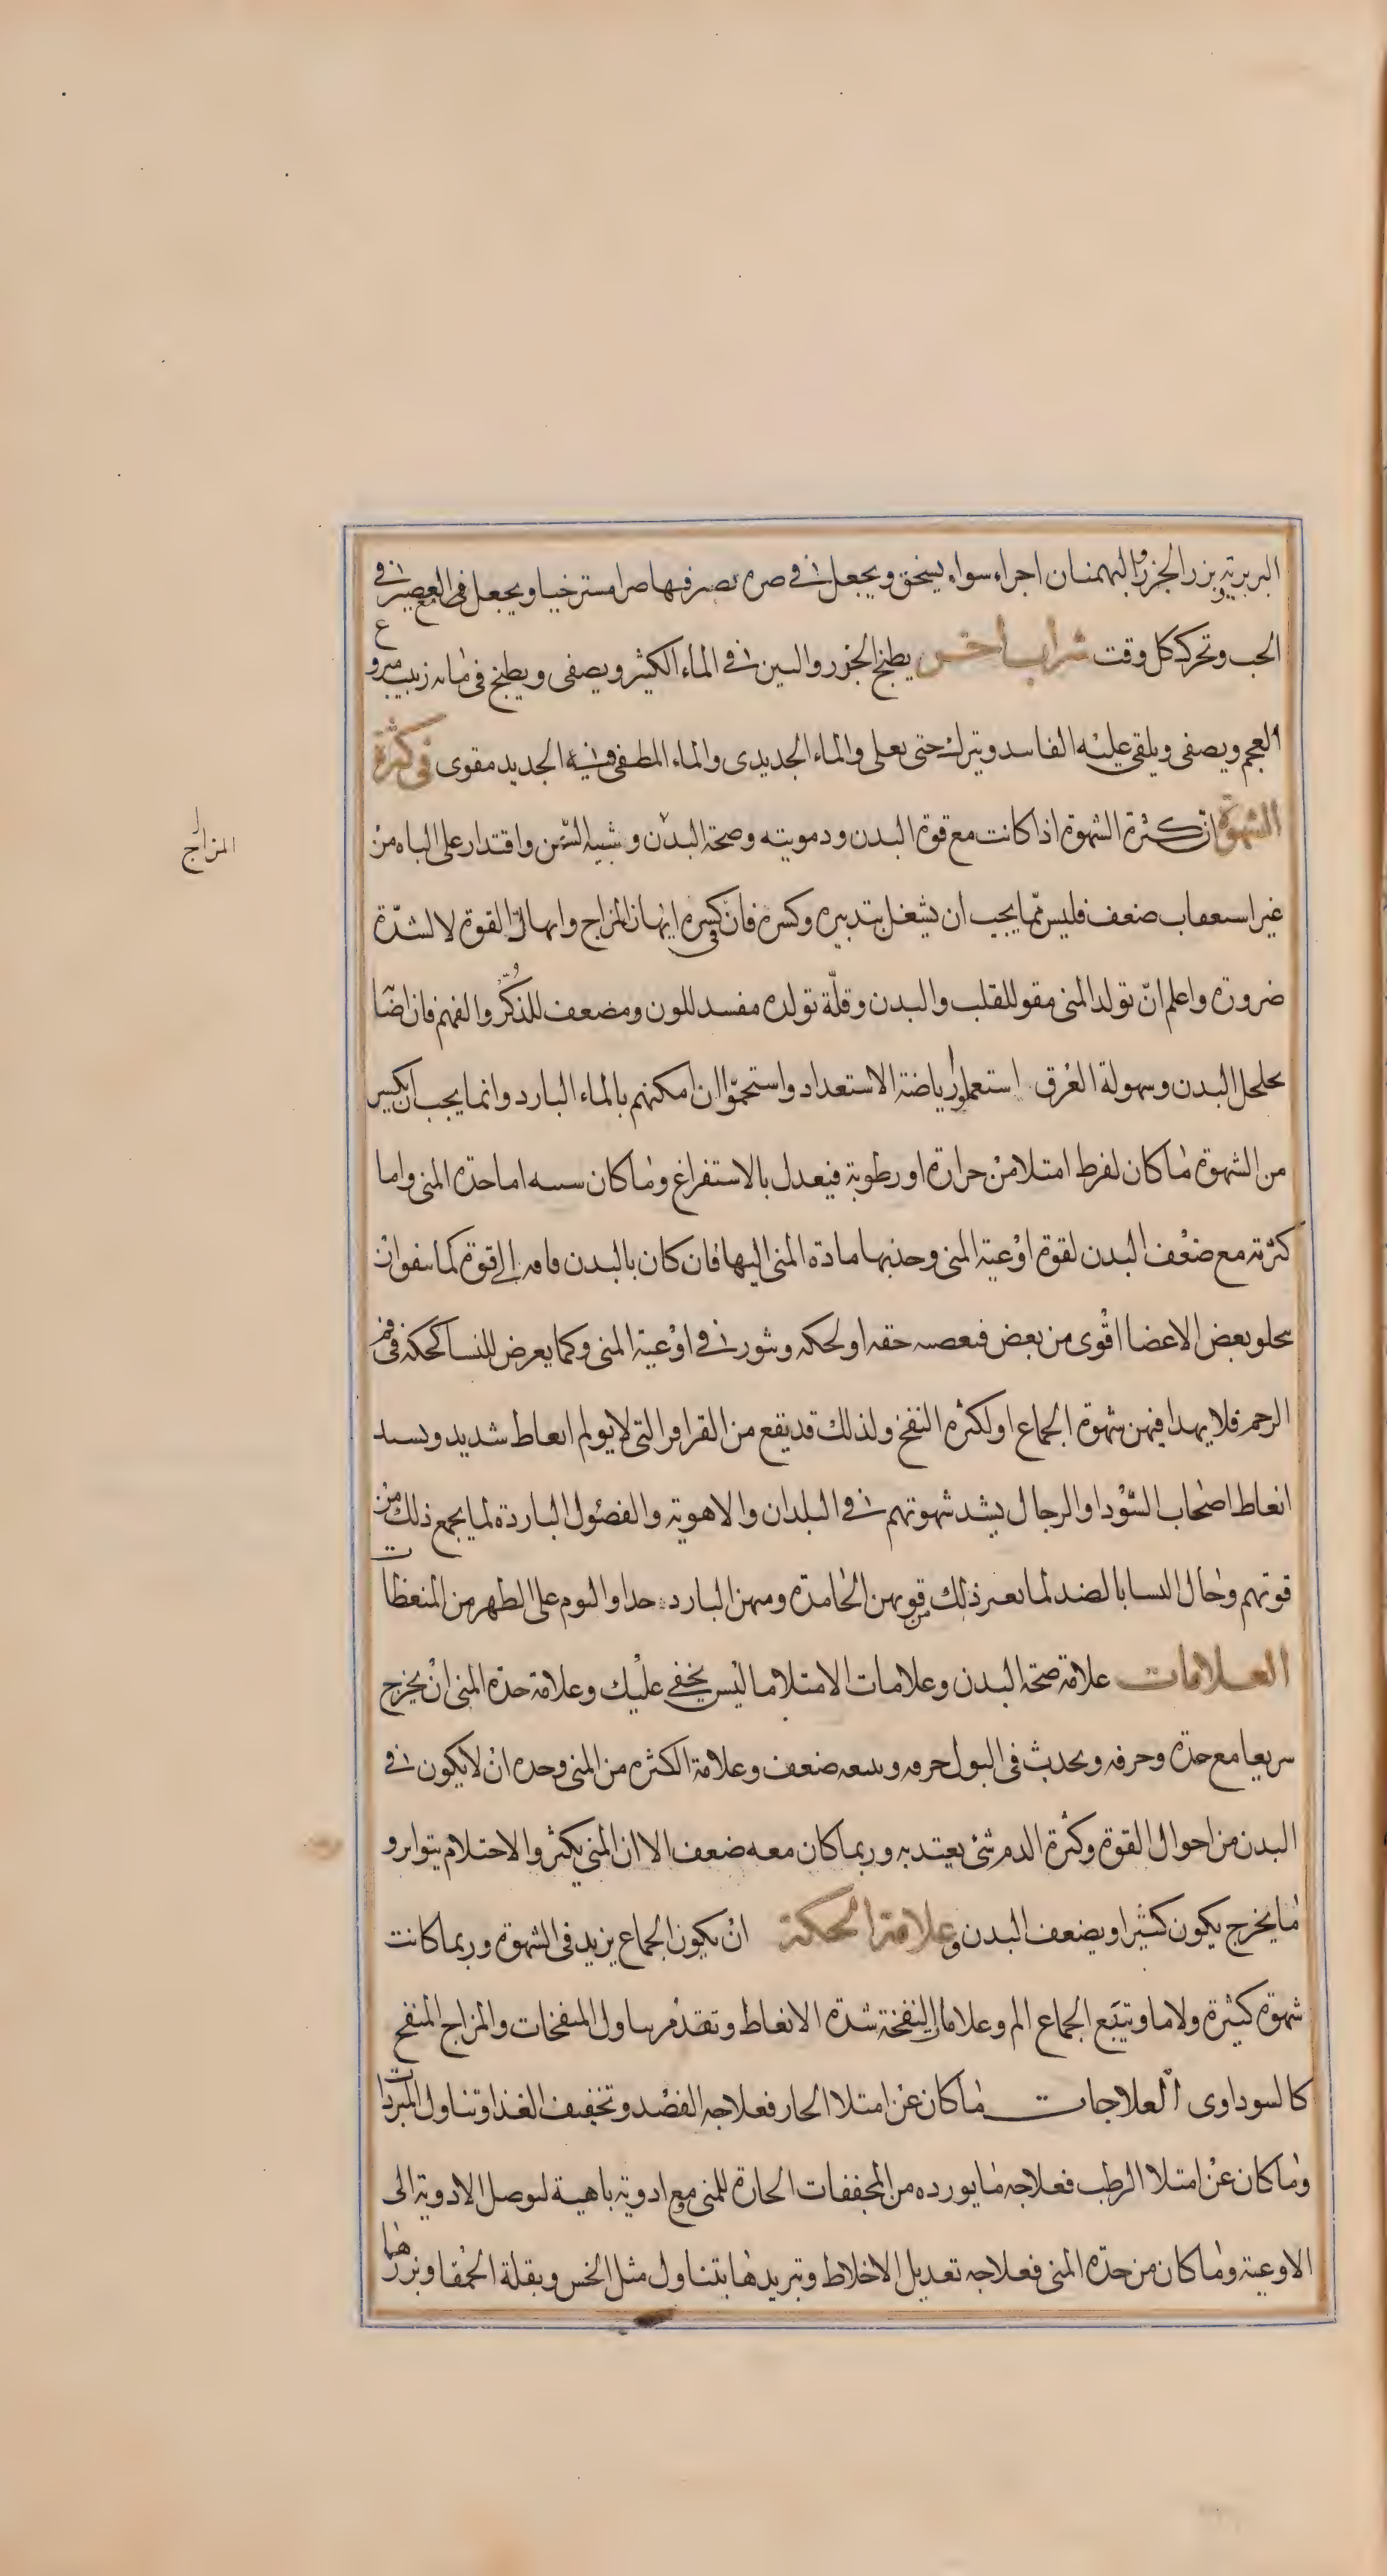 البربرية وبزر الجزر والبهمنان اجراء سواء يسحق ويجعل فى صره تصر فيها صرا مسترخيا ويجعل فى العصير فى
الحب وتحركه كل وقت شراب اخر يطبخ الجزر والتين فى الماء الكثير ويصفى ويطبخ فى مائه زبيب منزوع
العجم ويصفى ويلقى عليه الفانيد ويترك حتى يغلى والماء الحديدى والماء المطفى فيه الحديد مقوى فى كثرة
الشهوة ان كثرة الشهوة اذا كانت مع قوة البدن ودمويته وصحة البدن وشبيبة السن واقتدار على الباه من
غير استعقاب ضعف فليس مما يجب ان يشغل بتدبيره وكسره فان فى كسره انهاك المزاج وانهاك القوة لا لشدة
المزاج
ضرورة واعلم ان تولد المنى مقو للقلب والبدن وقلة تولده مفسد للون ومضعف للذكر والفهم فان اضا
تحلحل البدن وسهولة العرق استعملوا رياضة الاستعداد واستحموا ان امكنهم بالماء البارد وانما يجب ان يكسر
من الشهوة ما كان لفرط امتلا من حرارة او رطوبة فيعدل بالاستفراغ وما كان سببه اما حدة المنى واما
كثرته مع ضعف البدن لقوة اوعية المنى وجذبها مادة المنى اليها فان كان بالبدن فاقه الى قوة كما يتفق ان
يخلو بعض الاعضا اقوى من بعض او لحكه وبثور فى اوعية المنى وكما يعرض للنسا كحكة فى فم
الرحم فلا يهدا فيهن شهوة الجماع او لكثره النفخ ولذلك قد يقع من القراقر التى لا يولم انعاظ شديد ويشتد
انعاظ اصحاب السودا والرجال يشتد شهوتهم فى البلدان والاهوية والفصول الباردة لما يجمع ذلك من
قوتهم وحال النسا بالضد لما يعير ذلك من قوتهن الخامدة ومنيهن البارد جدا والنوم على الظهر من المنعظات
العلامات علامة صحة البدن وعلامات الامتلا ما ليس يخفى عليك وعلامة حدة المنى ان يخرج
سريعا مع حدة وحرقه ويحدث فى البول حرقه ويتبعه ضعف وعلامة الكثره من المنى وحده ان لا يكون فى
البدن من احوال القوة وكثرة الدم شئ يعتد به وربما كان معه ضعف الا ان المنى يكثر والاحتلام يتواتر و
ما يخرج يكون كثيرا ويضعف البدن وعلامة الحكة ان يكون الجماع يزيد فى الشهوة وربما كانت
شهوة كثيرة ولا ما ويتبع الجماع الم وعلامات النفخة شدة الانعاظ وتقدم تناول المنفخات والمزاج المنفخ
كالسوداوى العلاجات ما كان عن امتلا الحار فعلاجه الفصد وتخفيف الغذا وتناول المبردات
وما كان عن امتلا الرطب فعلاجه ما يورده من المجففات الحارة للمنى مع ادوية باهية لتوصل الادوية الى
الاوعية وما كان من حدة المنى فعلاجه تعديل الاخلاط وتبريدها بتناول مثل الخس وبقلة الحمقا وبزرها